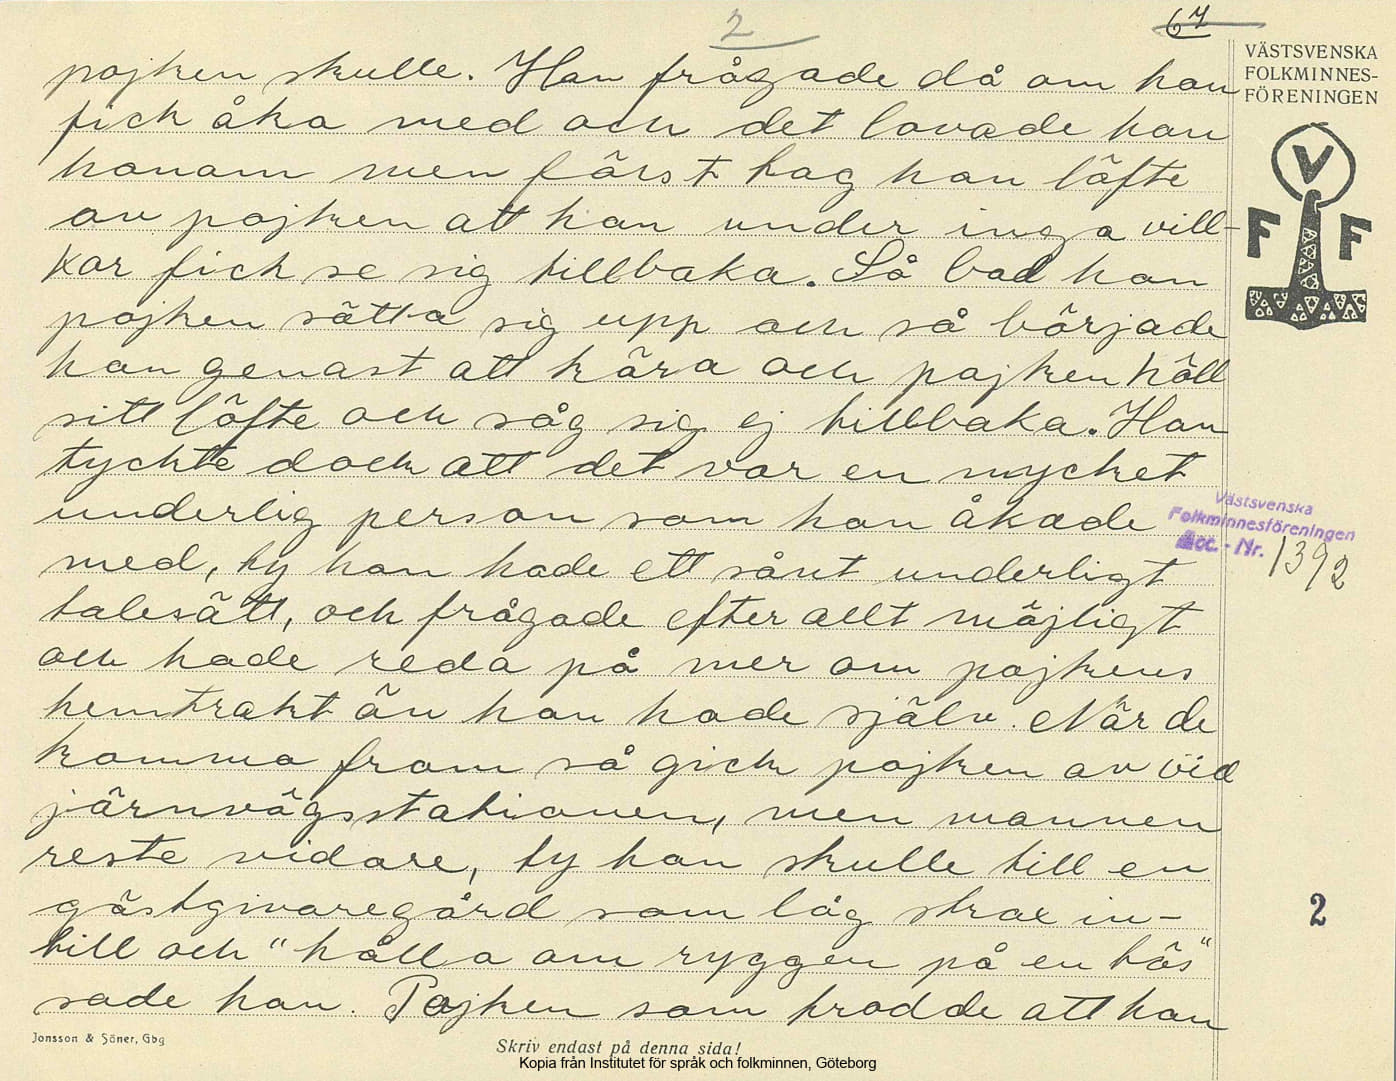 2
67
VÄSTSVENSKA
FOLKMINNES-
FÖRENINGEN
V
F F
pojken skulle. Han frågade då om han
fick åka med och det lovade han
honom men först tog han löfte
av pojken att han under inga vill-
kor fick se sig tillbaka. Så bad han
pojken sätta sig upp och så började
han genast att köra och pojken höll
sitt löfte och såg sig ej tillbaka. Han
tyckte dock att det var en mycket
underlig person som han åkade
med, ty han hade ett sånt underligt
talesätt, och frågade efter allt möjligt
och hade reda på mer om pojkens
hemtrakt än han hade själv. När de
komma fram så gick pojken av vid
järnvägsstationen, men mannen
reste vidare, ty han skulle till en
gästgivaregård som låg strax in-
till och "hålla om ryggen på en tös"
sade han. Pojken som trodde att han
Västsvenska
Folkminnesföreningen
Acc. - Nr. 1392
2
Jonsson & Söner, Gbg
Skriv endast på denna sida!
Kopia från Institutet för språk och folkminnen, Göteborg